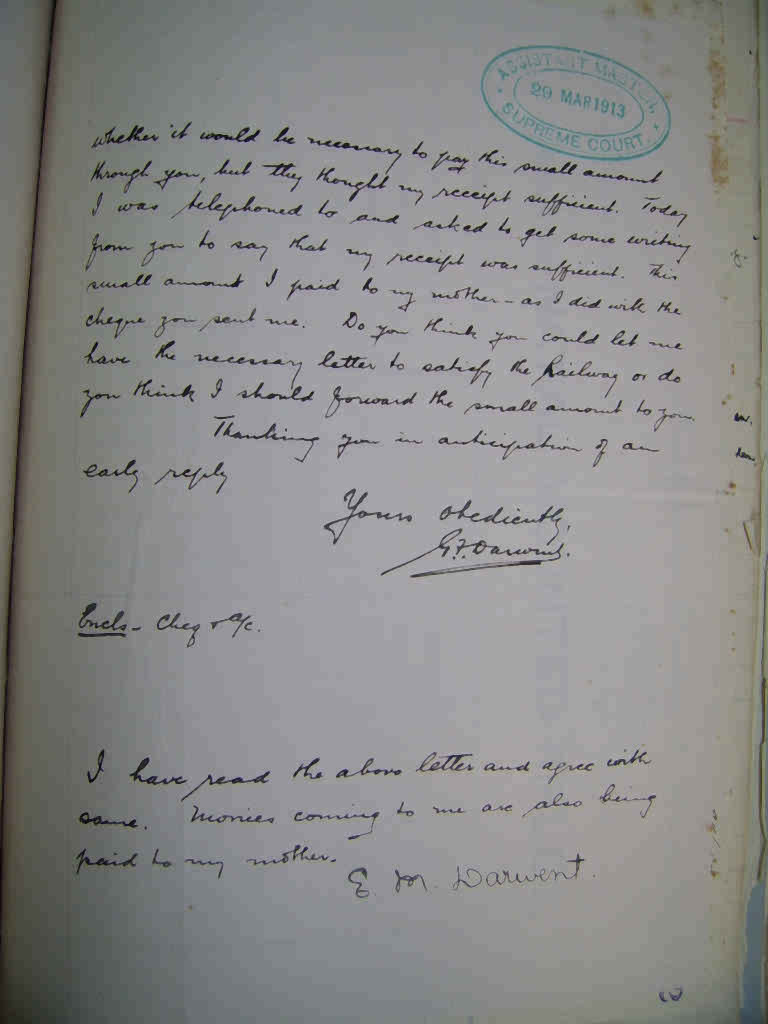 ASSISTANT MASTER,
29 MAR 1913
SUPREME COURT.
whether it would be necessary to pay this small amount
through you, but they thought my receipt sufficient. Today
I was telephoned to and asked to get some writing
from you to say that my receipt was sufficient. This
small amount I paid to my mother – as I did with the
cheque you sent me. Do you think you could let me
have the necessary letter to satisfy the Railway or do
you think I should forward the small amount to you.
Thanking you in anticipation of an
early reply
Yours obediently,
G.F. Darwent.
Encls – Cheq & a/c.
I have read the above letter and agree with
same. Monies coming to me are also being
paid to my mother.
E. M. Darwent.